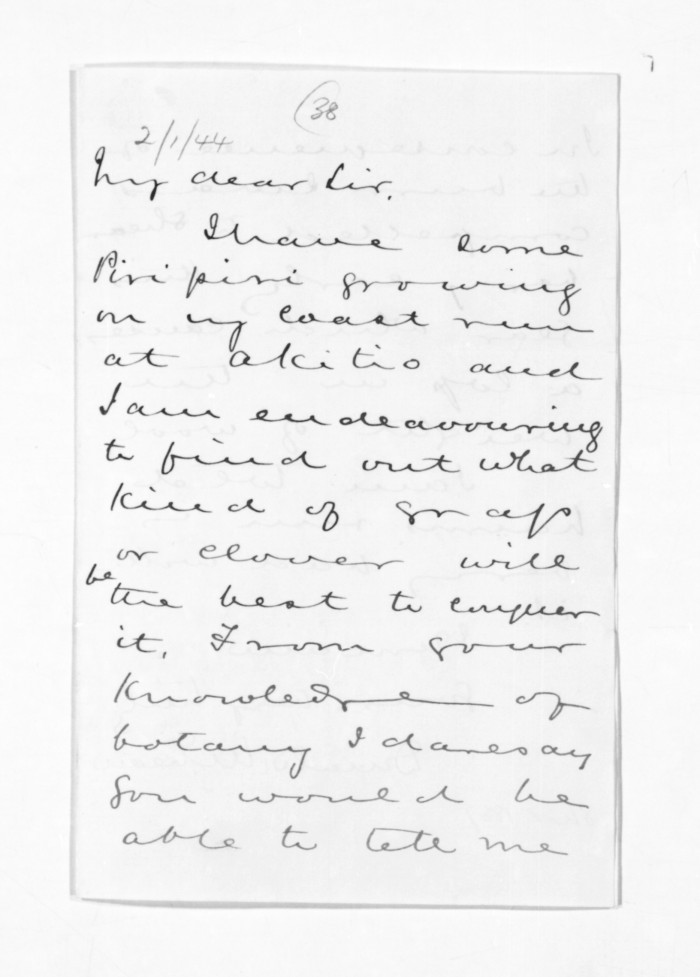 38
2/1/44
My dear Sir.
I have some
Piri piri growing
on my coast run
at Akitio and
I am endeavouring
to find out what
kind of grass
or clover will
be
the best to conquer
it. From your
knowledge of
botany I daresay
you would be
able to tell me